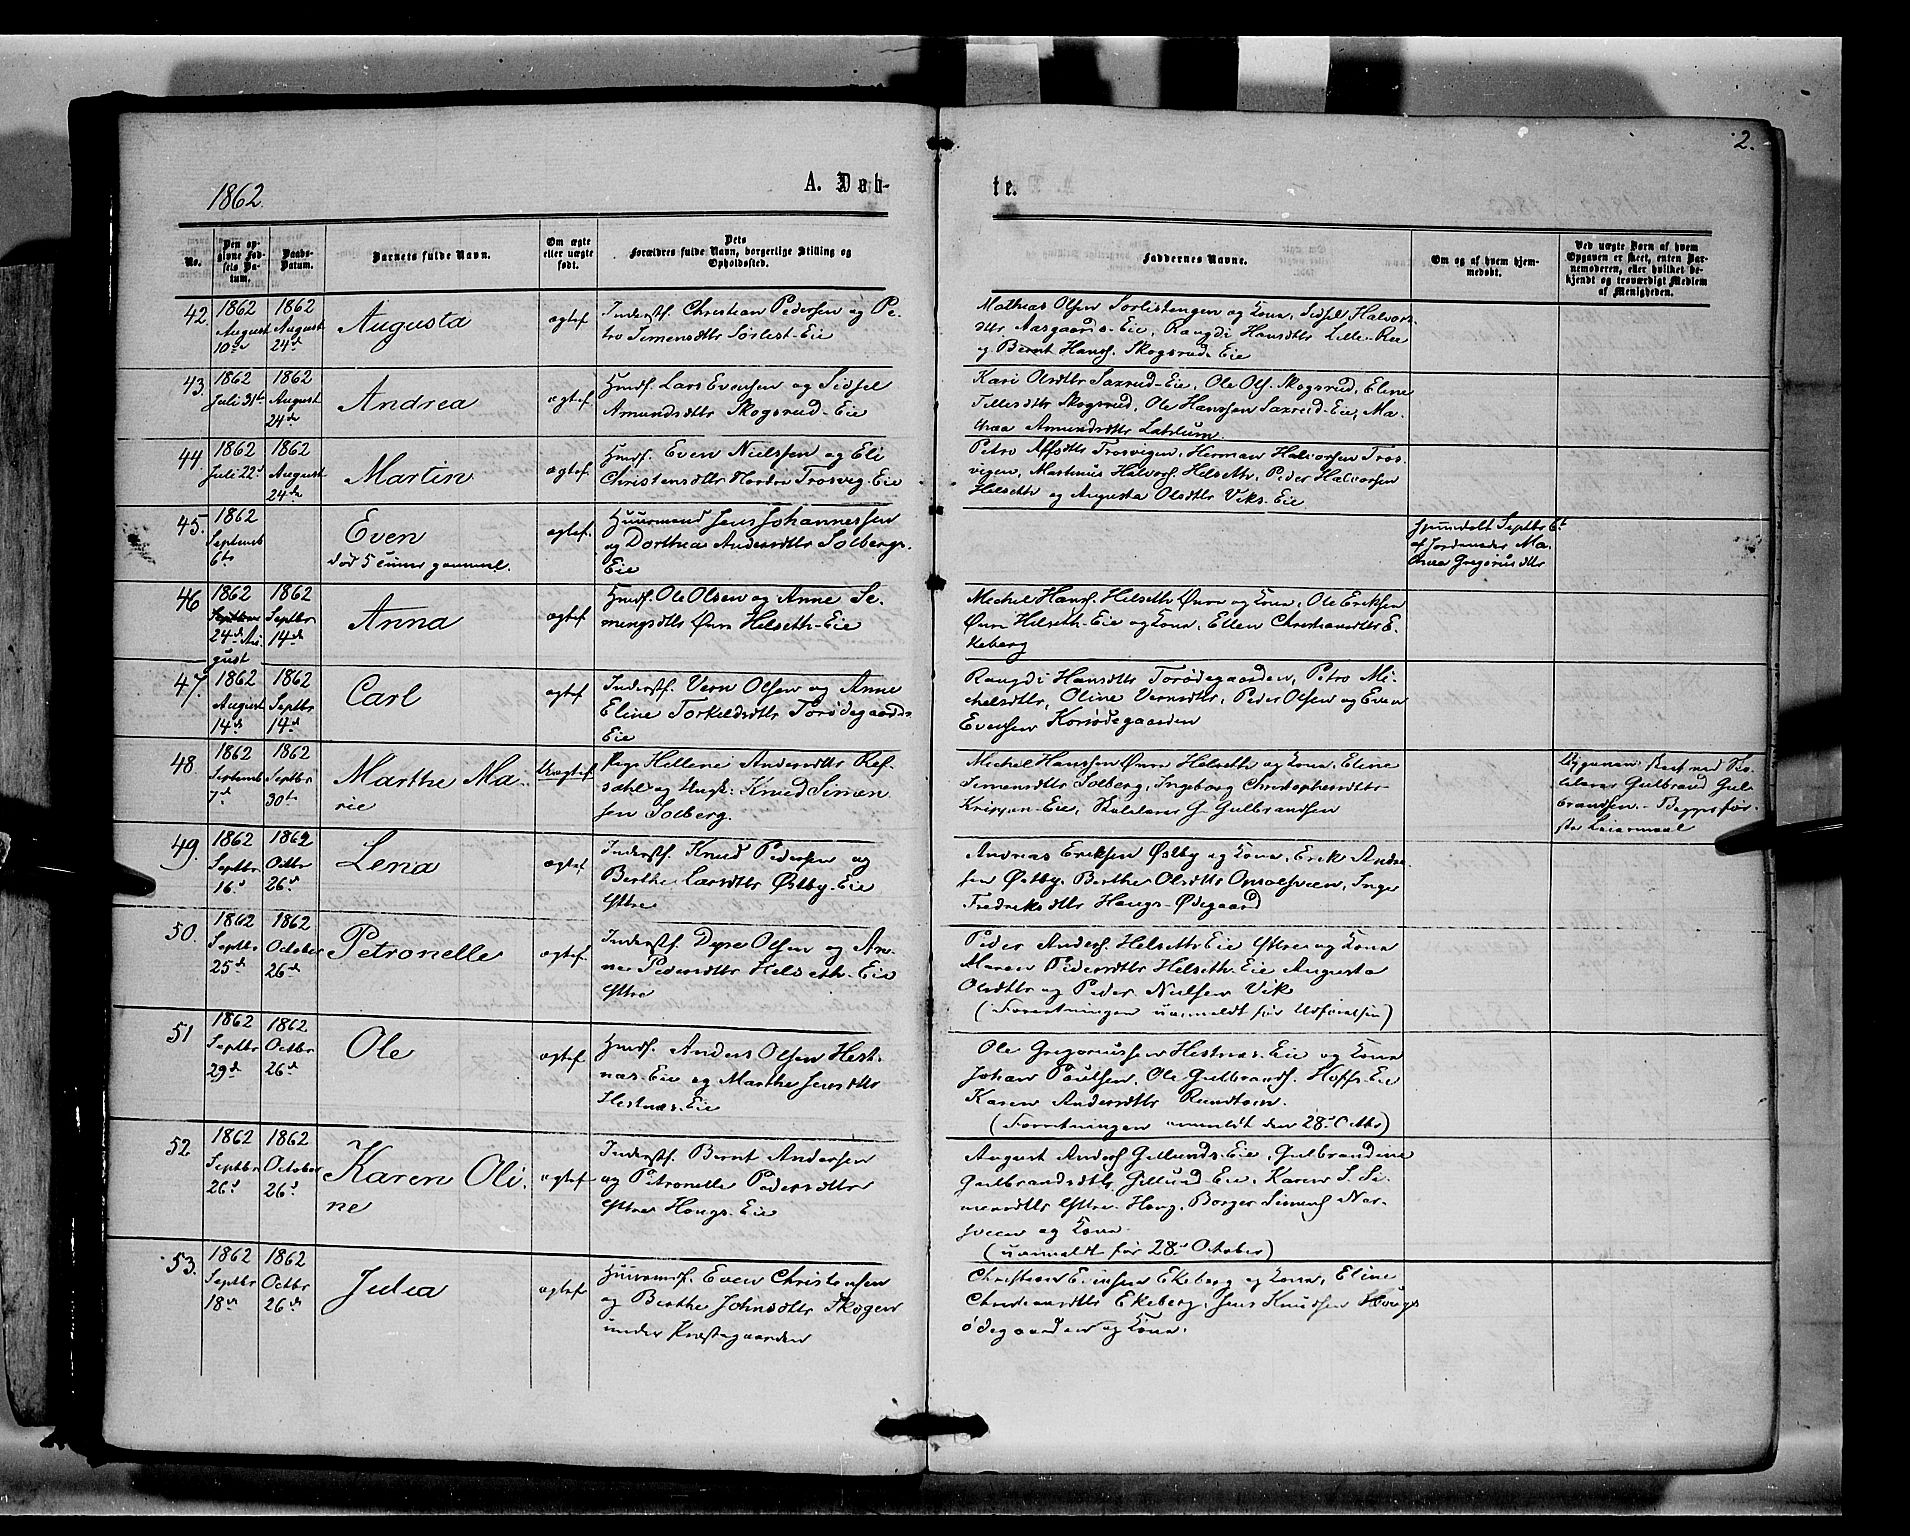 2.
1862.
A. Døb-
te.
No.
Den op-
givne Fød-
sels Da-
tum.
Daabs-
Datum.
Barnets fulde Navn.
Om ægte
eller uægte
født.
Dets
Forældres fulde Navn, borgerlige Stilling og
Opholdssted.
Faddernes Navne.
Om og af hvem hjem-
medøbt.
Ved uægte Barn af hvem
Opgaven er skeet, enten Bar-
nemoderen, eller hvilket be-
kjendt og troværdigt Medlem
af Menigheden.
42.
1862
August
10de
1862
August
24de
Augusta
ægtef.
Inderstf. Christian Pedersen og Pe-
tro Simensdtr Sørlist-Eie
Mathias Olsen Sørlistengen og Kona, Sidsel Halvors-
dtr Aasgaards-Eie, Rangdi Hansdtr Lille-Roe
og Bernt Hans. Skogsruds Eie
43.
1862
Juli 31te
1862
August
24de
Andrea
ægtef.
Hmdf. Lars Evensen og Sidsel
Amundsdtr Skogsrud-Eie
Kari Olsdtr Saxrud-Eie, Ole Ols. Skogsrud, Eline
Tillesdtr Skogsrud, Ole Hanssen Saxrud-Eie, Ma-
thea Amundsdtr
44.
1862
Juli 22d
1862
August
24de
Martin
ægtef.
Hmdf. Even Nielssen og Eli
Christensdtr Nordre Trosvig-Eie
Petro Trosvigen, Herman Halvorsen Tros-
vigen, Martinus Halvors. Helseth, Peder Halvorsen
Helseth og Augusta Olsdtr Viks-Eie.
45.
1862
Septemb
6te
Even
død 5 timer gammel.
ægtef.
Huusmand Jens Johannessen
og Dorthea Andersdtr Solbergs-
Eie
Hjemdøbt Septbr 6te
af Jordemoder Ma-
thea Gregoriusdtr
46
1862
24de Au-
gust
1862
Septbr
14de
Anna
ægtef
Hmdf. Ole Olsen og Anne Si-
mensdtr Øvre Helseth-Eie
Michel Hans. Helseth Øvre og Kona, Ole Eriksen
Øvre Helseth-Eie og Kona, Ellen Christiansdtr E-
keberg
47.
1862
August
14de
1862
Septbr
14de
Carl
ægtef
Inderstf. Vern Olsen og Anne
Eline Torkeldsdtr Torødegaards
Eie
Rangdi Hansdtr Torødegaarden, Petro Mi-
chelsdtr, Oline Vernsdtr, Peder Olsen og Even
Evensen Korsødegaarden
48.
1862
Septemb
7de
1862
Septbr
30te
Marthe Ma-
rie
Uægtef
Pige Hellene Andersdtr Ref-
sahl og Ungk. Knud Simen
sen Solberg.
Michel Hanssen Øvre Helseth og Kona, Eline
Simensdtr Solberg, Ingeborg Christophersdtr
Eie, G. Gulbrandsen
Gulbrand Gul-
brandsen. - Begges før-
ste Leiermaal
49.
1862
Septbr
16d
1862
Octbr
26d
Lena
ægtef
Inderstf. Knud Pedersen og
Berthe Larsdtr Østby-Eie
Østre
Andreas Eriksen Østby og Kona, Erik Andre
sen Østby, Berthe Olsdtr Opsalsveen, Inger
Fredriksdtr Hougs-Ødegaard
50.
1862
Septbr
25d
1862
October
26d
Petronelle
ægtef.
Inderstf. Dyre Olsen og An-
ne Pedersdtr Helseth-Eie
Østre
Peder Anders. Helseth-Eie Østre og Kona
Maren Pedersdtr Helseth-Eie Augusta
Olsdtr og Peder Nielsen Vik
(Forretningen uanmeldt før Udførelsen)
51
1862
Septbr
29d
1862
Octbr
26d
Ole
ægtef
Hmdf. Anders Olsen Hest-
næs-Eie og Marthe Jensdtr
Hestnæs-Eie
Ole Gregoriussen Hestnæs-Eie og Kona
Johan Poulsen, Ole Gulbrands. Hoffs-Eie
Karen Andersdtr Rundtom.
(Forretningen anmeldt den 28d Octbr)
52
1862
Septbr
26d
1862
October
26d
Karen Oli-
ne
ægtef
Inderstf. Bernt Andersen
og Petronelle Pedersdtr
Østre Hougs-Eie
August Anders. Gillunds-Eie, Gulbrandine
Gulbrandsdtr Gillund-Eie, Karen S. Si-
mensdtr Østre-Houg, Borger Simens
og Kona.
(uanmeldt før 28d October)
53.
1862
Septbr
18de
1862
Octbr
26d
Julia
ægtef
Huusmdf. Even Christensen
og Berthe Johnsdtr Skogen
under
Christian Ekeberg og Kona, Eline
Christiansdtr Ekeberg, Jens Knudsen Hougs
ødegaarden og Kona.